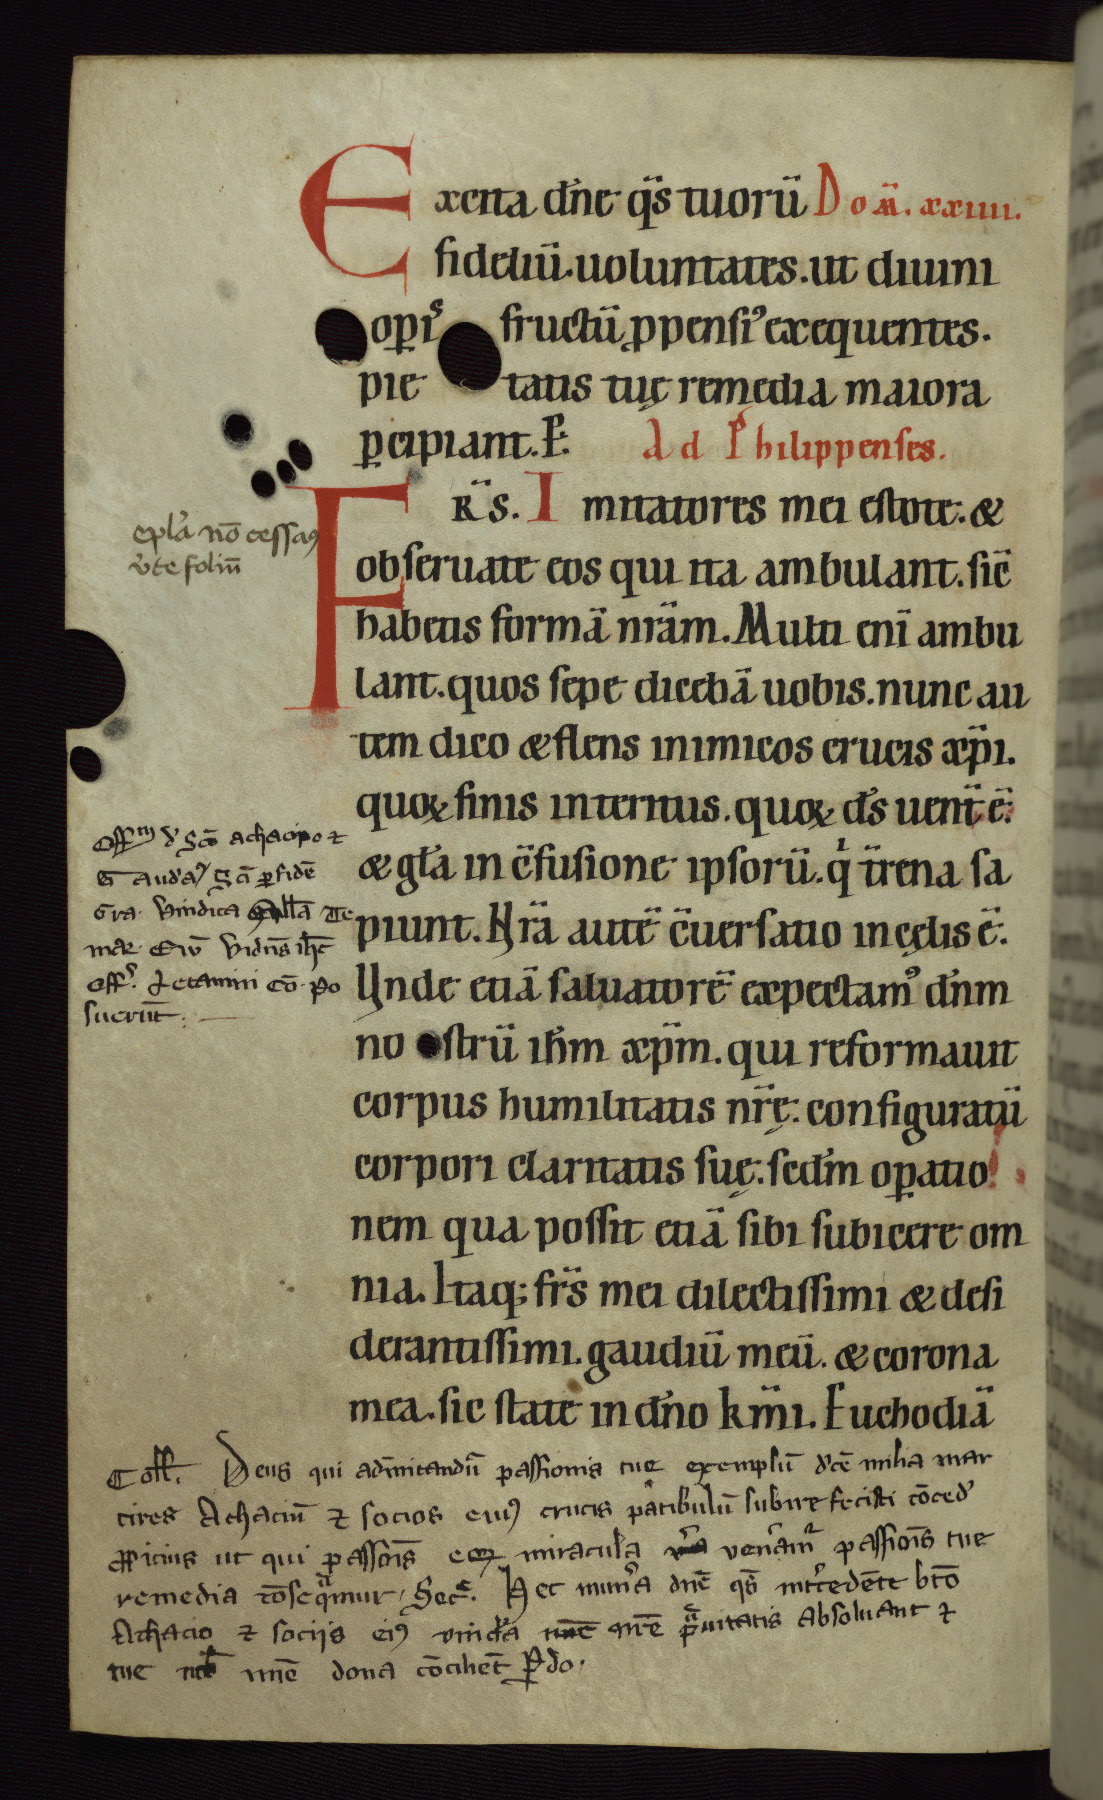 Excita dn̄e qs̄ tuorū Dom̄. xxiiii.
fideliū. uoluntates. ut diuini
opis fructū ppensi' exequentes.
pietatis tuę remedia maiora
pcipiant. P. Ad Philippenses.
FRs̄. Imitatores mei estote. &
obseruate eos qui ita ambulant. sic̄
habetis formā nrām. Multi enī ambu
lant. quos sepe dicebā uobis. nunc au
tem dico & flens inimicos crucis xp̄i.
quoꝝ finis interitus. quoꝝ ds̄ uent̄ ē.
& glā in c̄fusione ipsorū. qi trena sa
piunt. Nrā autē c̄uersatio in cęlis ē.
Unde etiā saluatorē expectam' dn̄m
nostrū ihm̄ xp̄m. qui reformauit
corpus humilitatis nrę̄. configuratū
corpori claritatis suę. secdm̄ opatio
nem qua possit etiā sibi subicere om
nia. Itaq; frs̄ mei dilectissimi & desi
derantissimi. gaudiū meū. & corona
mea. sic state in dn̄o km̄i. Euchodiā
epla nō cessat
vte foliū
Offm d' Scō achacio po &
Gaudea' Scī p fidē
Gra. Vindica Allā Te
mar. Ew̄ Vidn̄s ihc̄
Off'. Letamini Cō. Po
suerūt.
Coll. Deus qui ad imitandū passionis tue exemplū dc̄e milia mar
tires Achaciū & socios eius crucis patibulū subire fecisti cōced'
ppicius ut qui passiōis eoꝝ miracula venam' passiōis tue
remedia cōseqamur. Sec. Hec mun'a dn̄e qs̄ int'cedēte btō
Achacio & sociis ei' vincla nr̄e prauitatis absoluant &
tue nob dona cōciliēt P. do.